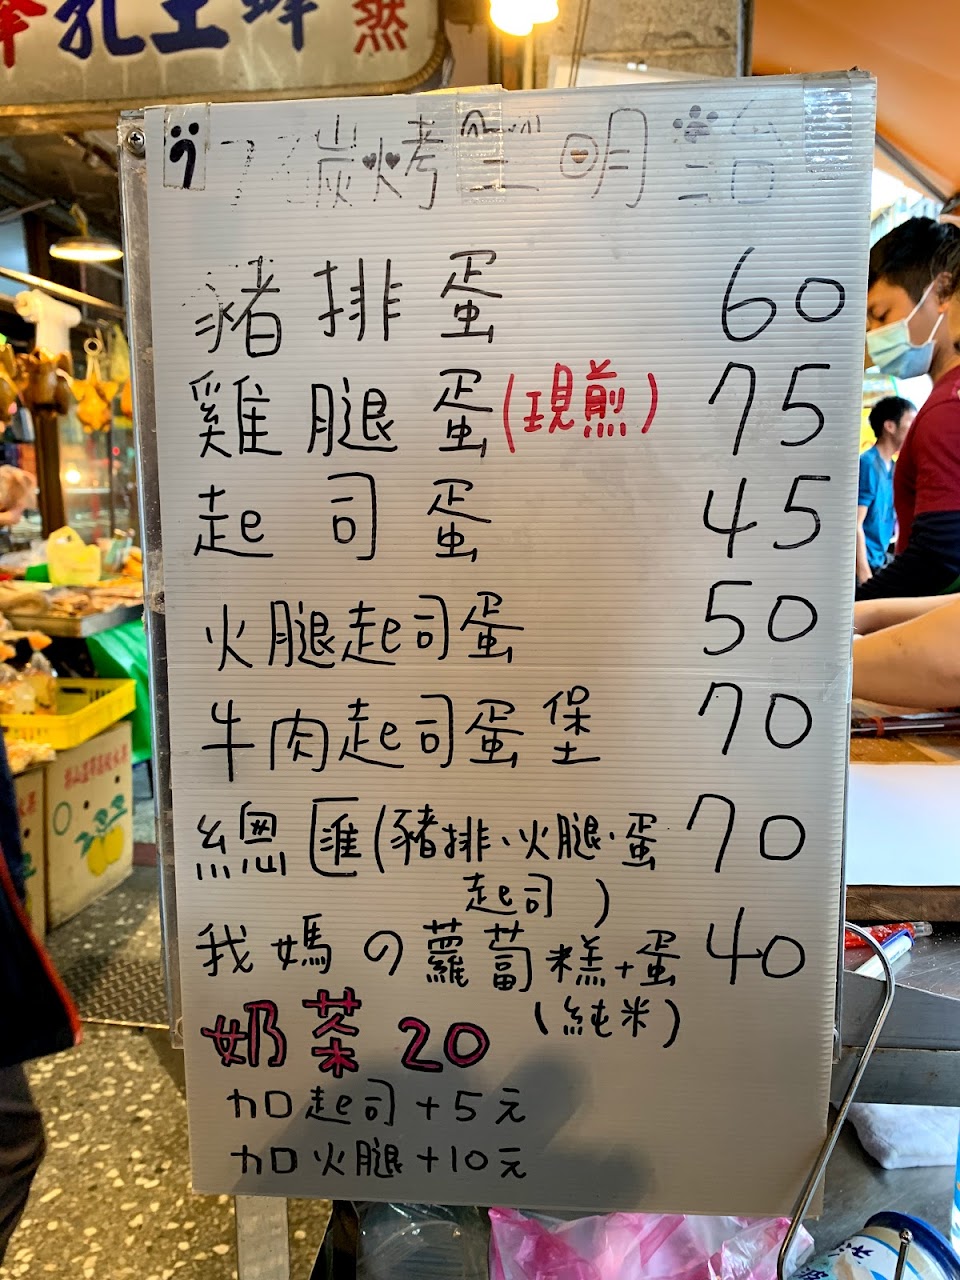 蜂王乳
然
炭烤三明治
豬排蛋 60
雞腿蛋(現煎) 75
起司蛋 45
火腿起司蛋 50
牛肉起司蛋堡 70
總匯(豬排、火腿、蛋 70
起司)
我媽の蘿蔔糕+蛋 40
(純米)
奶茶 20
加起司+5元
加火腿+10元